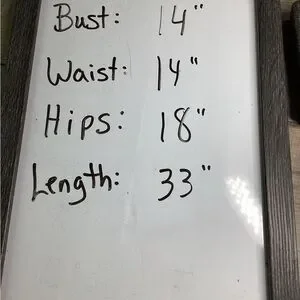 Bust: 14"
Waist: 14"
Hips: 18"
Length: 33"